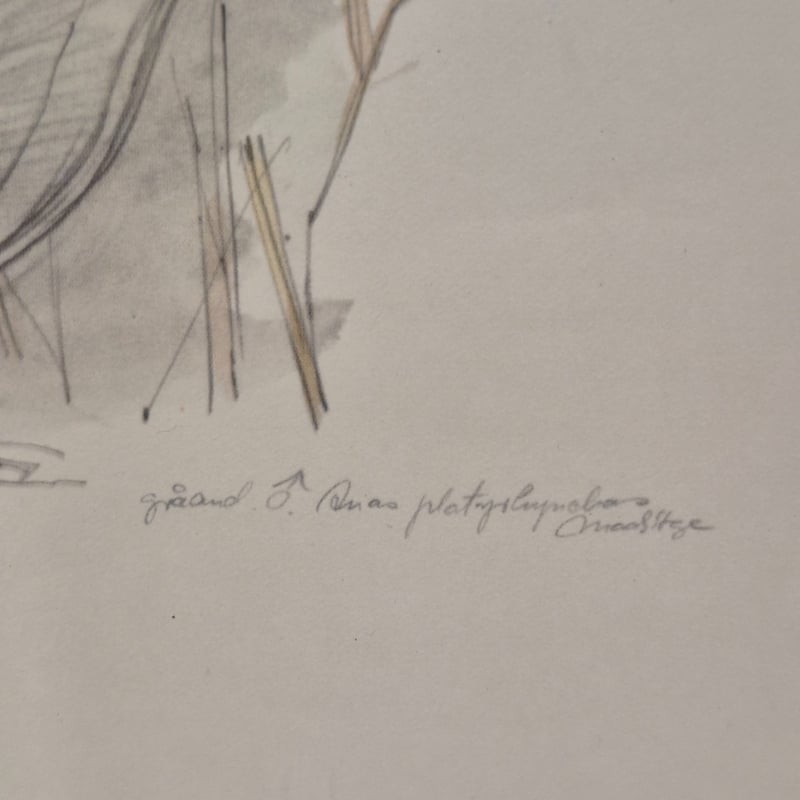 gråand. ♂. Anas platyrhynchos
Mads Stage